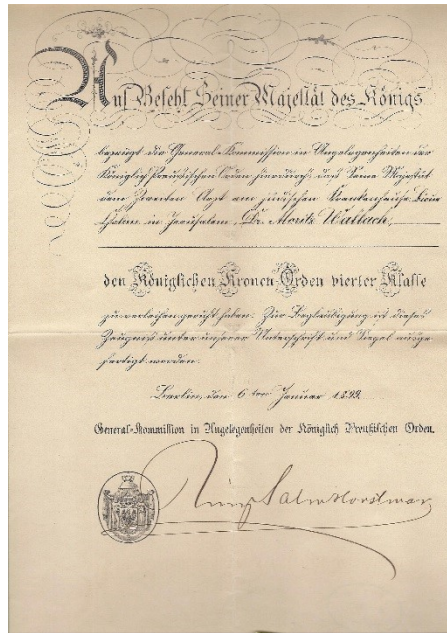 Auf Befehl Seiner Majestät des Königs
bezeugt die General-Kommission in Angelegenheiten der
Königlich Preußischen Orden hierdurch, daß Seine Majestät
dem Arzt am jüdischen Krankenhause
in Jerusalem, Dr. Moritz Wallach,
den Königlichen Kronen-Orden vierter Klasse
zu verleihen geruht haben. Zur Beglaubigung ist dieses
Zeugniß unter unserer Unterschrift und Siegel ausge
fertigt worden.
Berlin, den 6ten Januar 1899.
General-Kommission in Angelegenheiten der Königlich Preußischen Orden.
Salm Horstmar